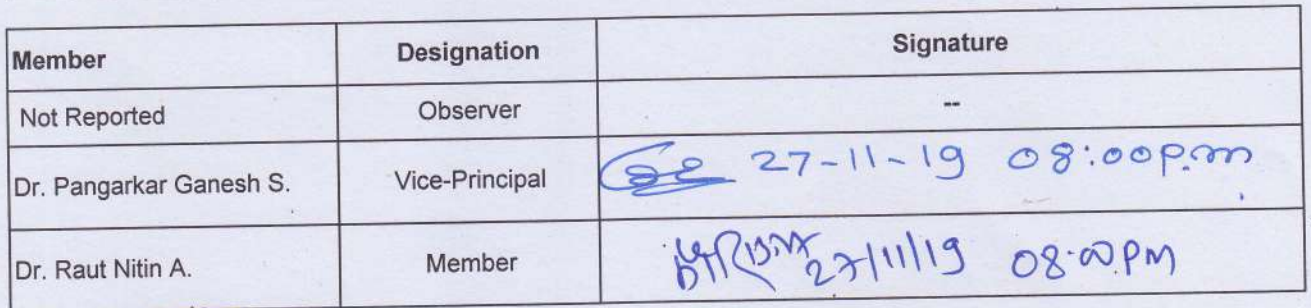 Member Designation Signature
Not Reported Observer --
Dr. Pangarkar Ganesh S. Vice-Principal 27-11-19 08:00p.m
Dr. Raut Nitin A. Member 27/11/19 08:00PM